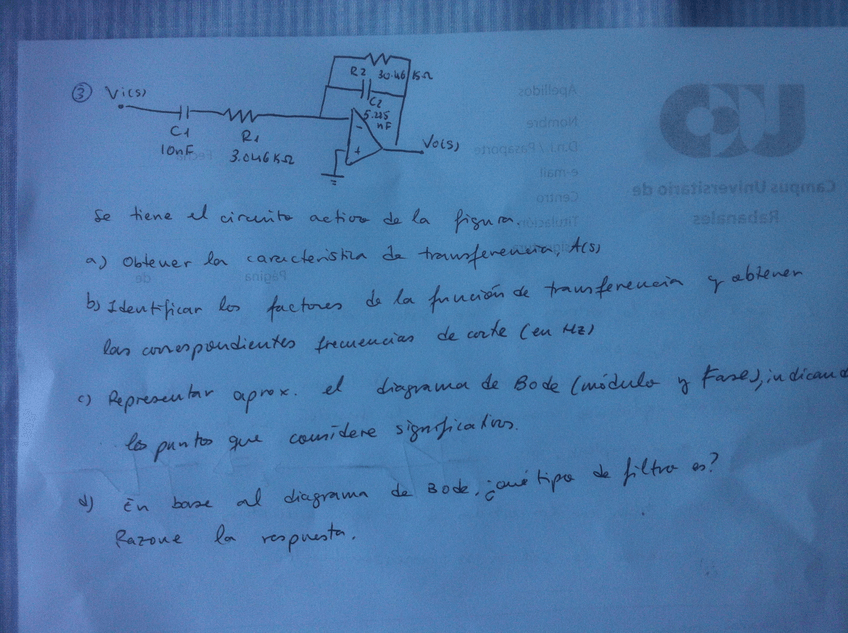 ③ Vi(s)
C1
10nF
R1
3.046KΩ
R2 30.46 KΩ
C2
5.225
nF
-
+
Vo(s)
Se tiene el circuito activo de la figura.
a) Obtener la caracteristica de transferencia, A(s)
b) Identificar los factores de la función de transferencia y obtener
las correspondientes frecuencias de corte (en Hz)
c) Representar aprox. el diagrama de Bode (módulo y Fase), indicando
los puntos que considere significativos.
d) En base al diagrama de Bode, ¿qué tipo de filtro es?
Razone la respuesta.
Apellidos
Nombre
D.N.I. / Pasaporte
e-mail
Centro
Titulación
Página de
Fecha
Campus Universitario de
Rabanales